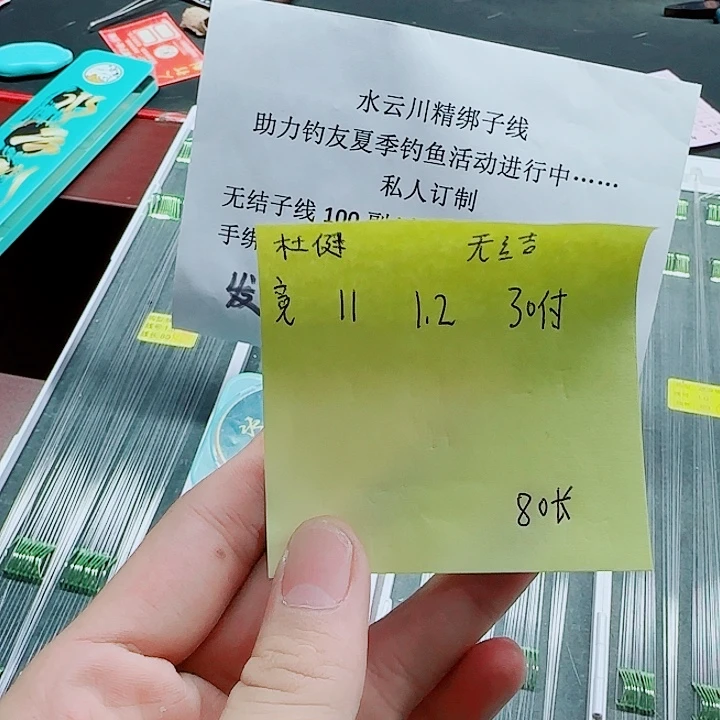 水云川精绑子线
助力钓友夏季钓鱼活动进行中……
私人订制
无结子线 100 副
手绑
发
杜健 无结
竞 11 1.2 30付
80长